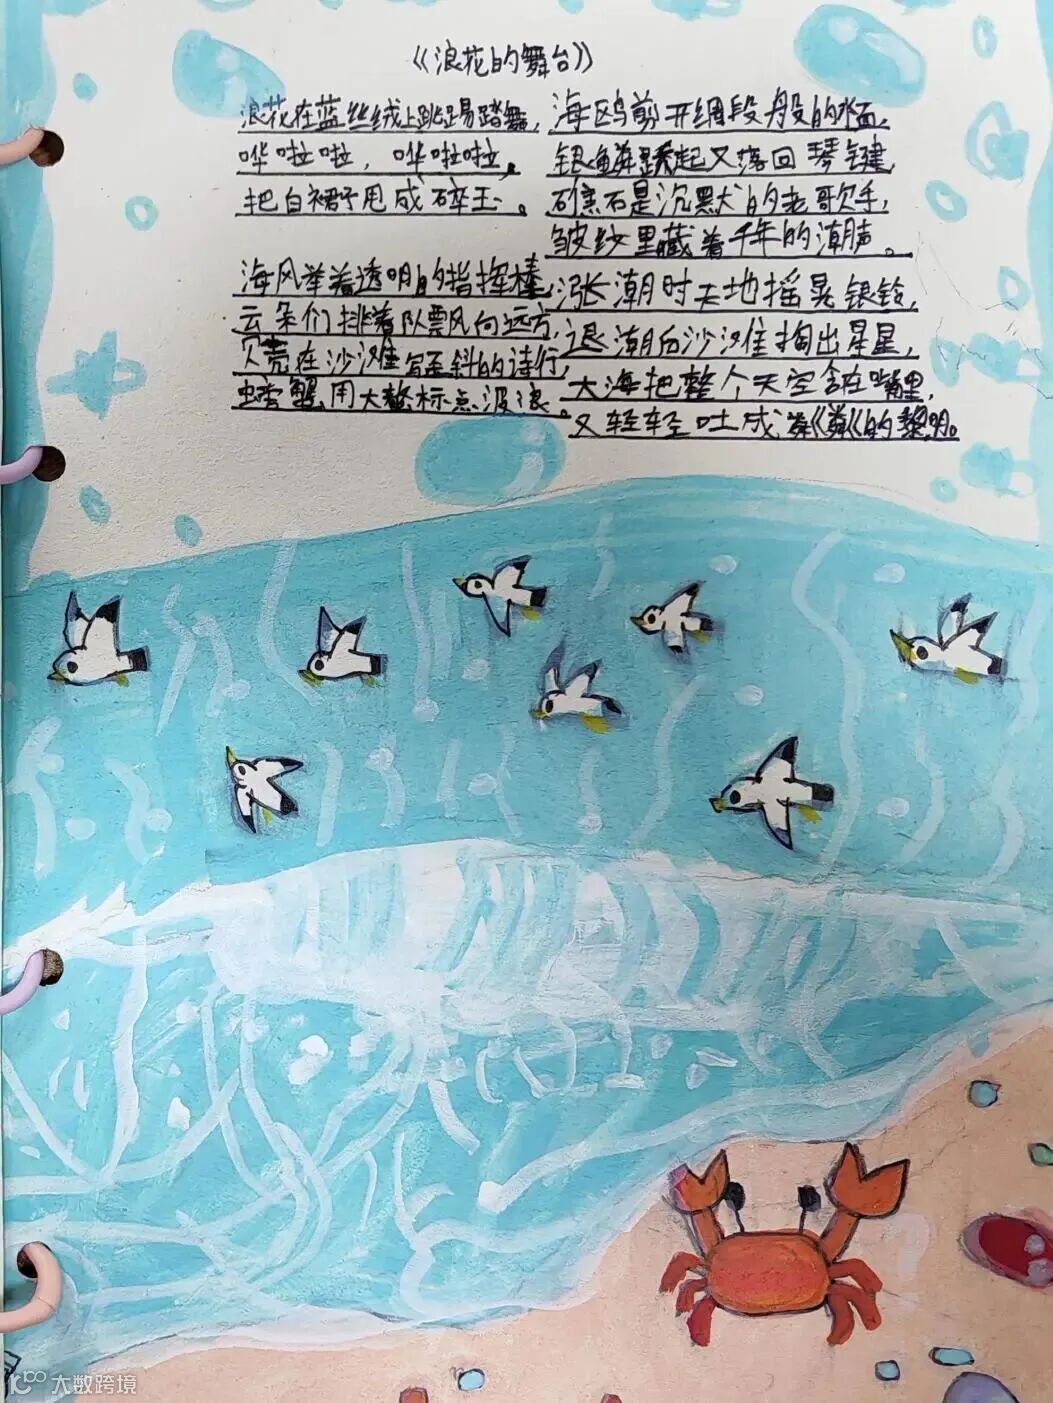 《浪花的舞台》
浪花在蓝丝绒上跳踢踏舞，
哗啦啦，哗啦啦。
把白裙子甩成碎玉。
海风举着透明的指挥棒，
云朵们排着队飘向远方，
贝壳在沙滩写歪斜的诗行，
螃蟹用大螯标点波浪。
海鸥剪开绸段般的水面，
银鳞跃起又落回琴键，
礁石是沉默的老歌手，
皱纹里藏着千年的潮声。
涨潮时天地摇晃银铃，
退潮后沙滩掏出星星，
大海把整个天空含在嘴里，
又轻轻吐成粼粼的黎明。
大数跨境